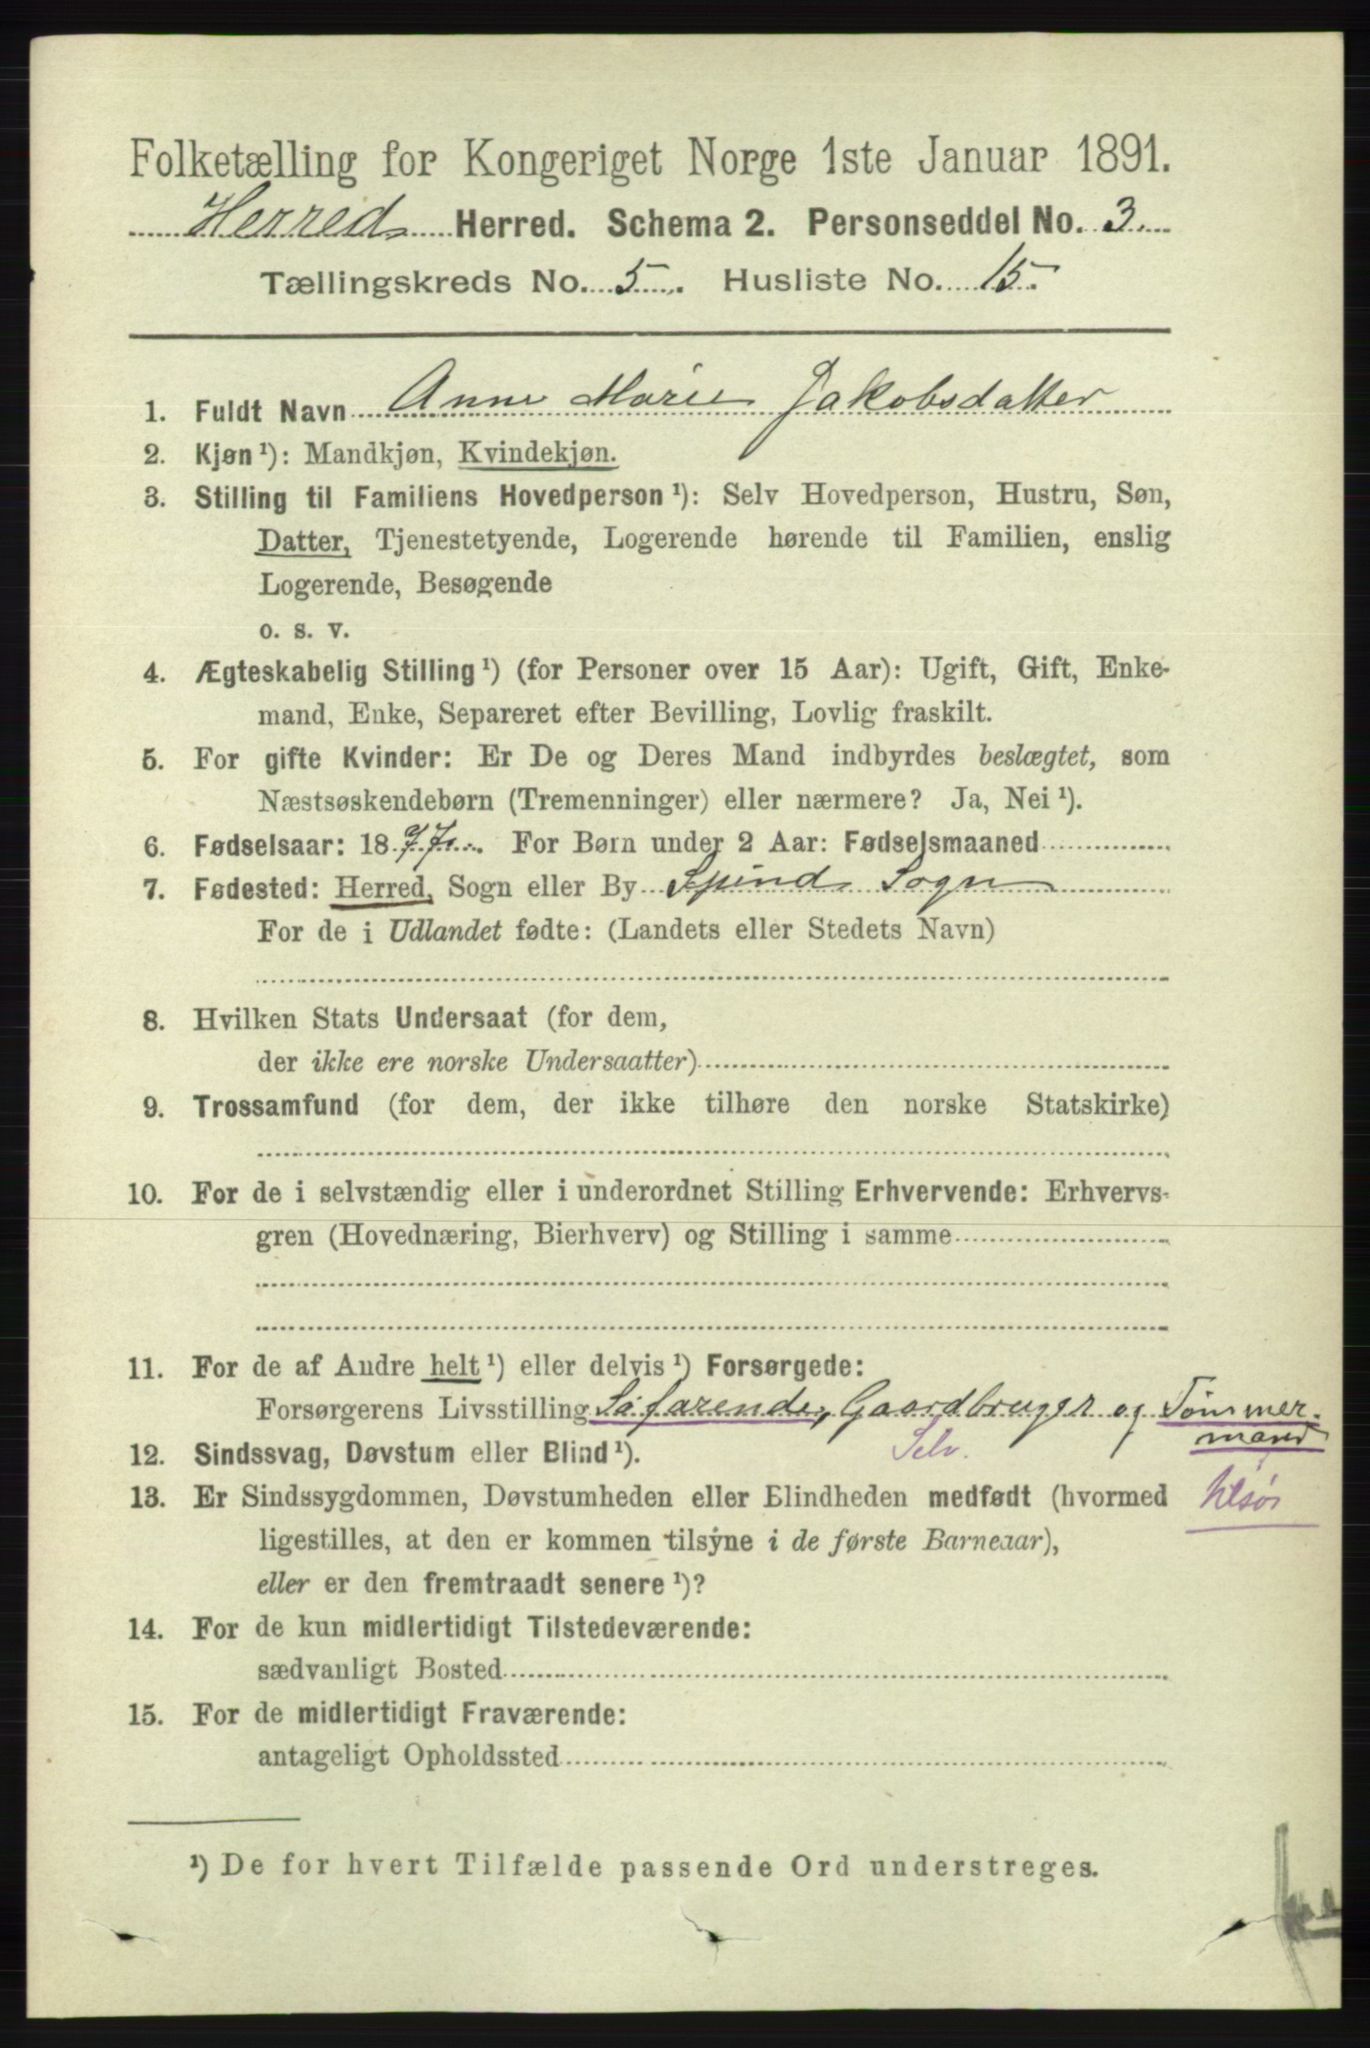 Folketælling for Kongeriget Norge 1ste Januar 1891.
Herred Herred. Schema 2. Personseddel No. 3
Tællingskreds No. 5. Husliste No. 15.
1. Fuldt Navn Anne Marie Jakobsdatter
2. Kjøn¹): Mandkjøn, Kvindekjøn.
3. Stilling til Familiens Hovedperson¹): Selv Hovedperson, Hustru, Søn,
Datter, Tjenestetyende, Logerende hørende til Familien, enslig
Logerende, Besøgende
o. s. v.
4. Ægteskabelig Stilling¹) (for Personer over 15 Aar): Ugift, Gift, Enke-
mand, Enke, Separeret efter Bevilling, Lovlig fraskilt.
5. For gifte Kvinder: Er De og Deres Mand indbyrdes beslægtet, som
Næstsøskendebørn (Tremenninger) eller nærmere? Ja, Nei¹).
6. Fødselsaar: 18 For Børn under 2 Aar: Fødselsmaaned
7. Fødested: Herred, Sogn eller By Spind Sogn
For de i Udlandet fødte: (Landets eller Stedets Navn)
8. Hvilken Stats Undersaat (for dem,
der ikke ere norske Undersaatter)
9. Trossamfund (for dem, der ikke tilhøre den norske Statskirke)
10. For de i selvstændig eller i underordnet Stilling Erhvervende: Erhvervs-
gren (Hovednæring, Bierhverv) og Stilling i samme
11. For de af Andre helt¹) eller delvis¹) Forsørgede:
Forsørgerens Livsstilling Søfarende, Gaardbruger og Tømmer-
mand
12. Sindssvag, Døvstum eller Blind¹). Selv.
13. Er Sindssygdommen, Døvstumheden eller Blindheden medfødt (hvormed
ligestilles, at den er kommen tilsyne i de første Barneaar),
eller er den fremtraadt senere¹)?
14. For de kun midlertidigt Tilstedeværende:
sædvanligt Bosted
15. For de midlertidigt Fraværende:
antageligt Opholdssted
¹) De for hvert Tilfælde passende Ord understreges.